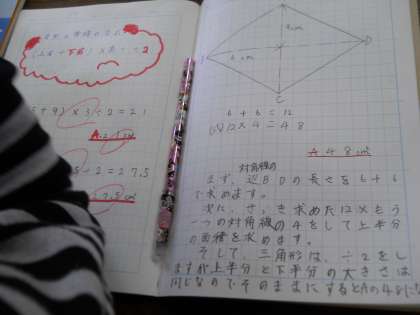 (上底+下底)×高さ÷2
+9)×3÷2=21
÷2=27.5
4cm
6cm
B
D
C
6+6=12
12×4=48
A 48cm²
対角線の
まず、辺BDの長さを6+6
で求めます。
次に、さっき求めた12×もう
一つの対角線の4をして上半分
の面積を求めます。
そして、三角形は、÷2をし
ますが上半分と下半分の大きさは
同じなのでそのままにするとAの48に